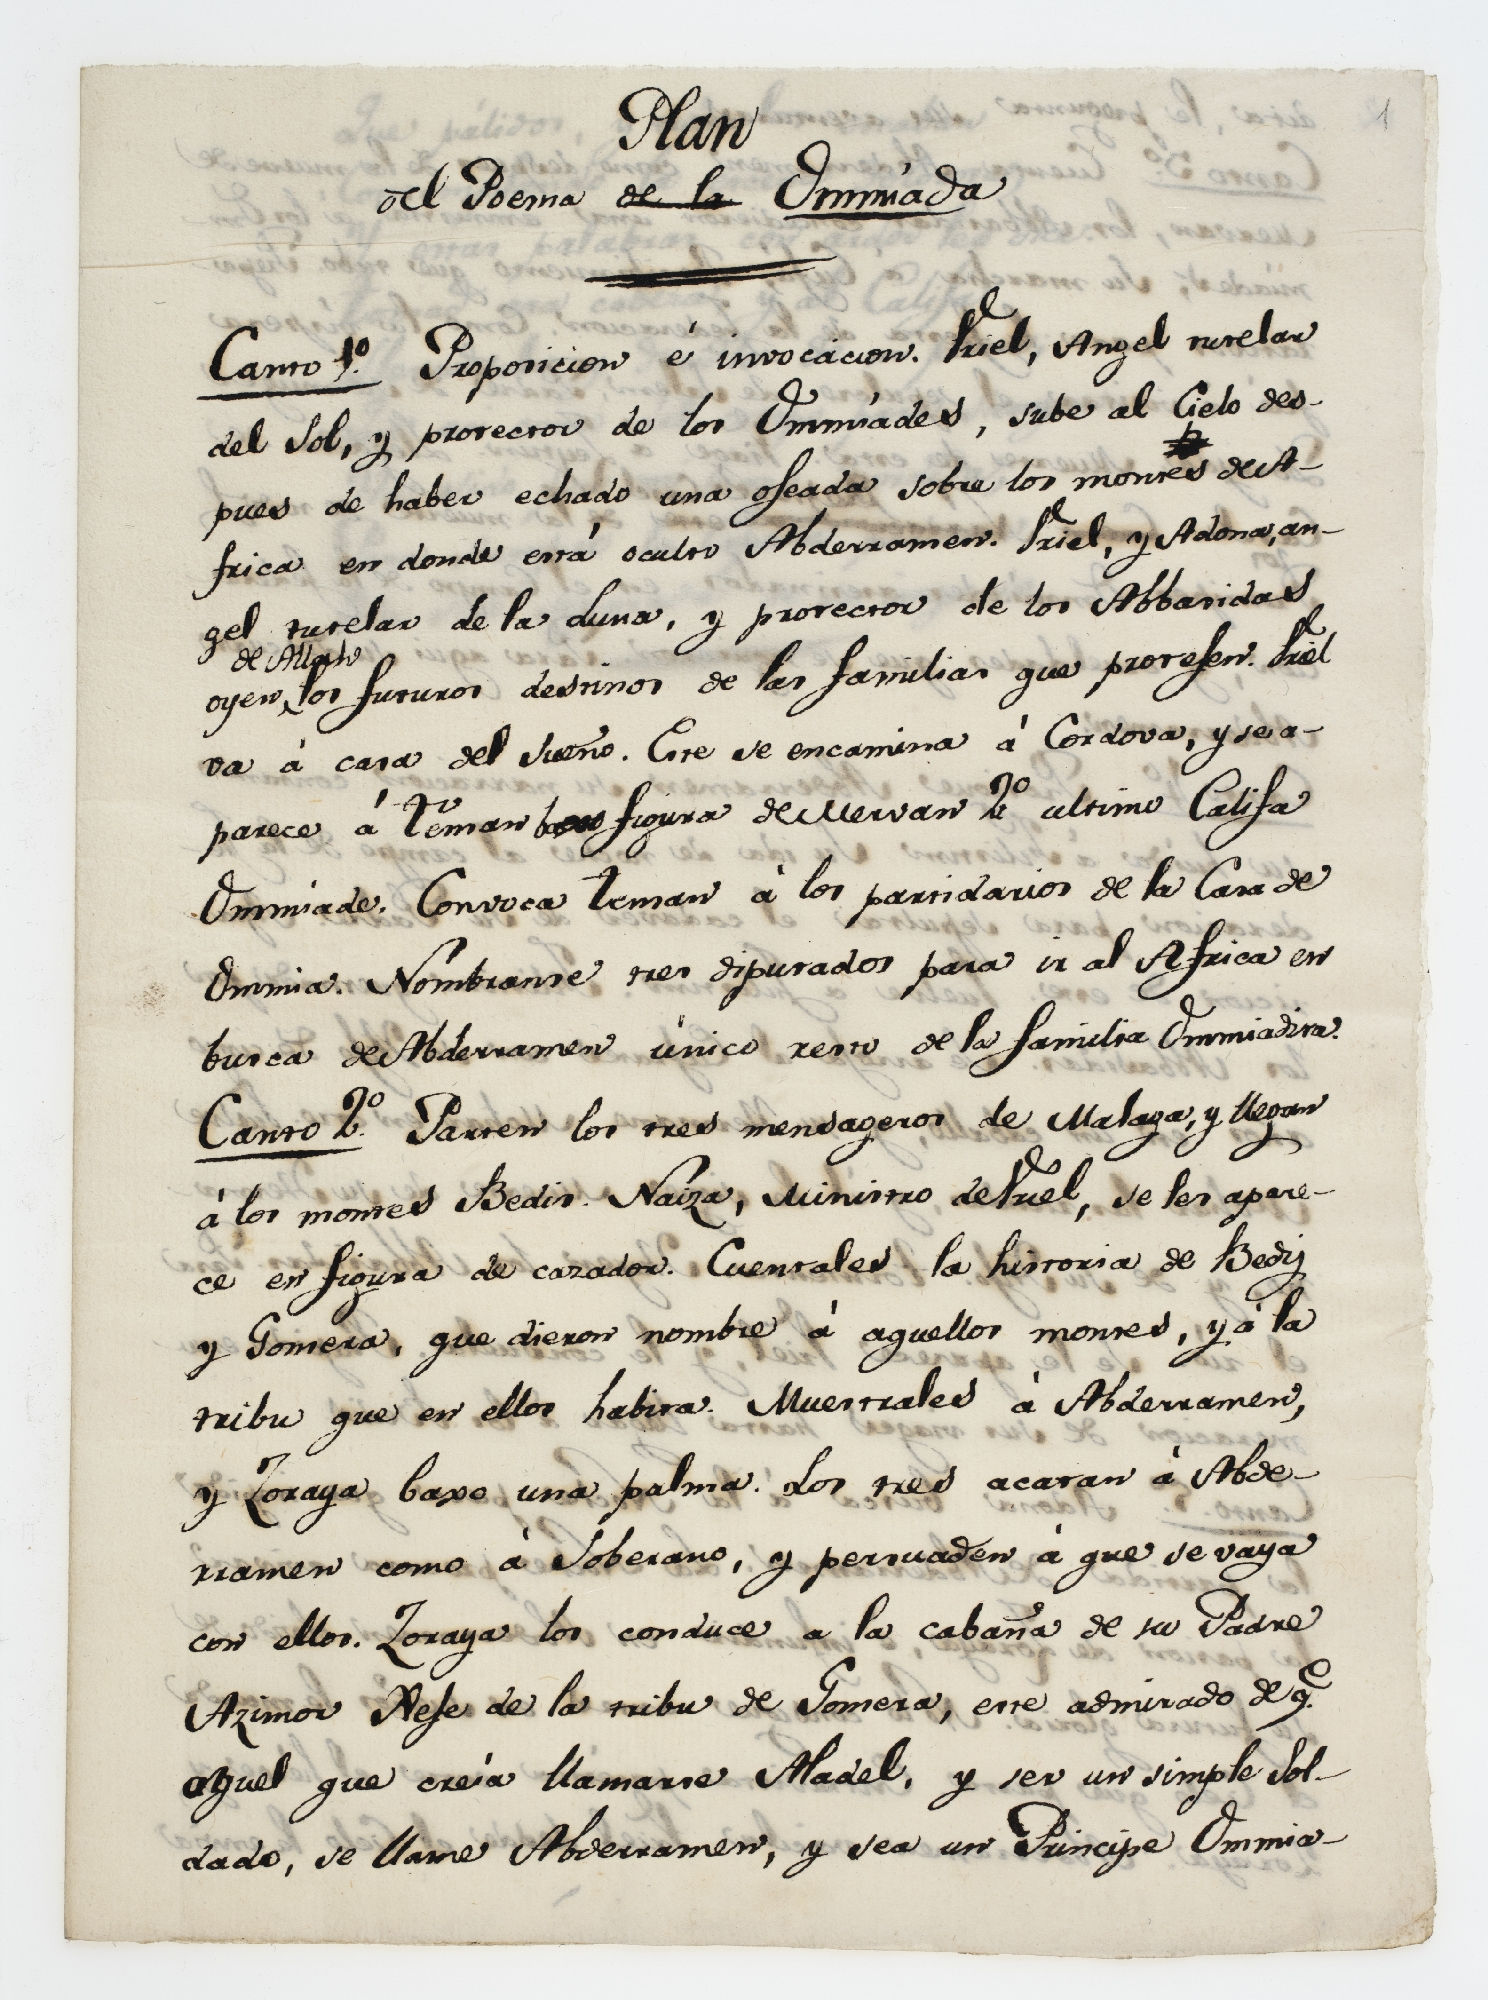 1
Plan
del Poema de la Ommíada
Canto 1.º Proposicion é invocacion. Vriel, Angel tutelar
del Sol, y protector de los Ommíades, sube al Cielo des-
pues de haber echado una ojeada sobre los montes de A-
frica en donde está oculto Abderramen. Vriel, y Adona, an-
gel tutelar de la Luna, y protector de los Abbasidas
de Allah
oyen los futuros destinos de las familias que protejen. Vriel
va á casa del Sueño. Este se encamina á Córdova, y se a-
parece á Teman figura de Mervan 2.º ultimo Califa
Ommíade. Convoca Teman á los partidarios de la Casa de
Ommia. Nómbranse tres diputados para ir al Africa en
busca de Abderramen único resto de la familia Ommiadita.
Canto 2.º Parten los tres mensageros de Malaga, y llegan
á los montes Bedis. Naiza, Ministro de Vriel, se les apare-
ce en figura de cazador. Cuentales la historia de Bedis
y Gomera, que dieron nombre á aquellos montes, y á la
tribu que en ellos habita. Muestrales á Abderramen,
y Zoraya baxo una palma. Los tres acatan á Abde-
rramen como á Soberano, y persuaden á que se vaya
con ellos. Zoraya los conduce a la cabaña de su Padre
Azimor Xefe de la tribu de Gomera, este admirado de q.e
aquel que creía llamarse Aladel, y ser un simple Sol-
dado, se llame Abderramen, y sea un Principe Ommia-